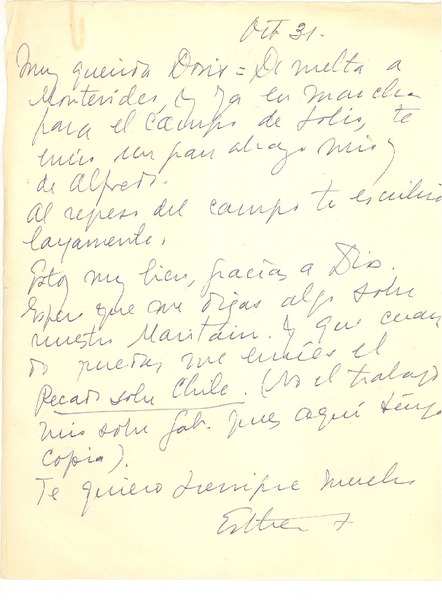 Oct 31.
Muy querida Doris = De vuelta a
Montevideo, y ya en marcha
para el campo de Solís, te
envío un gran abrazo mío y
de Alfredo.
Al regreso del campo te escribiré
largamente.
Estoy muy bien, gracias a Dios.
Espero que me digas algo sobre
nuestro Maritain. Y que cuan
do puedas me envíes el
Recado sobre Chile. (No el trabajo
mío sobre Gab. pues aquí tengo
copia).
Te quiero siempre mucho
Esther